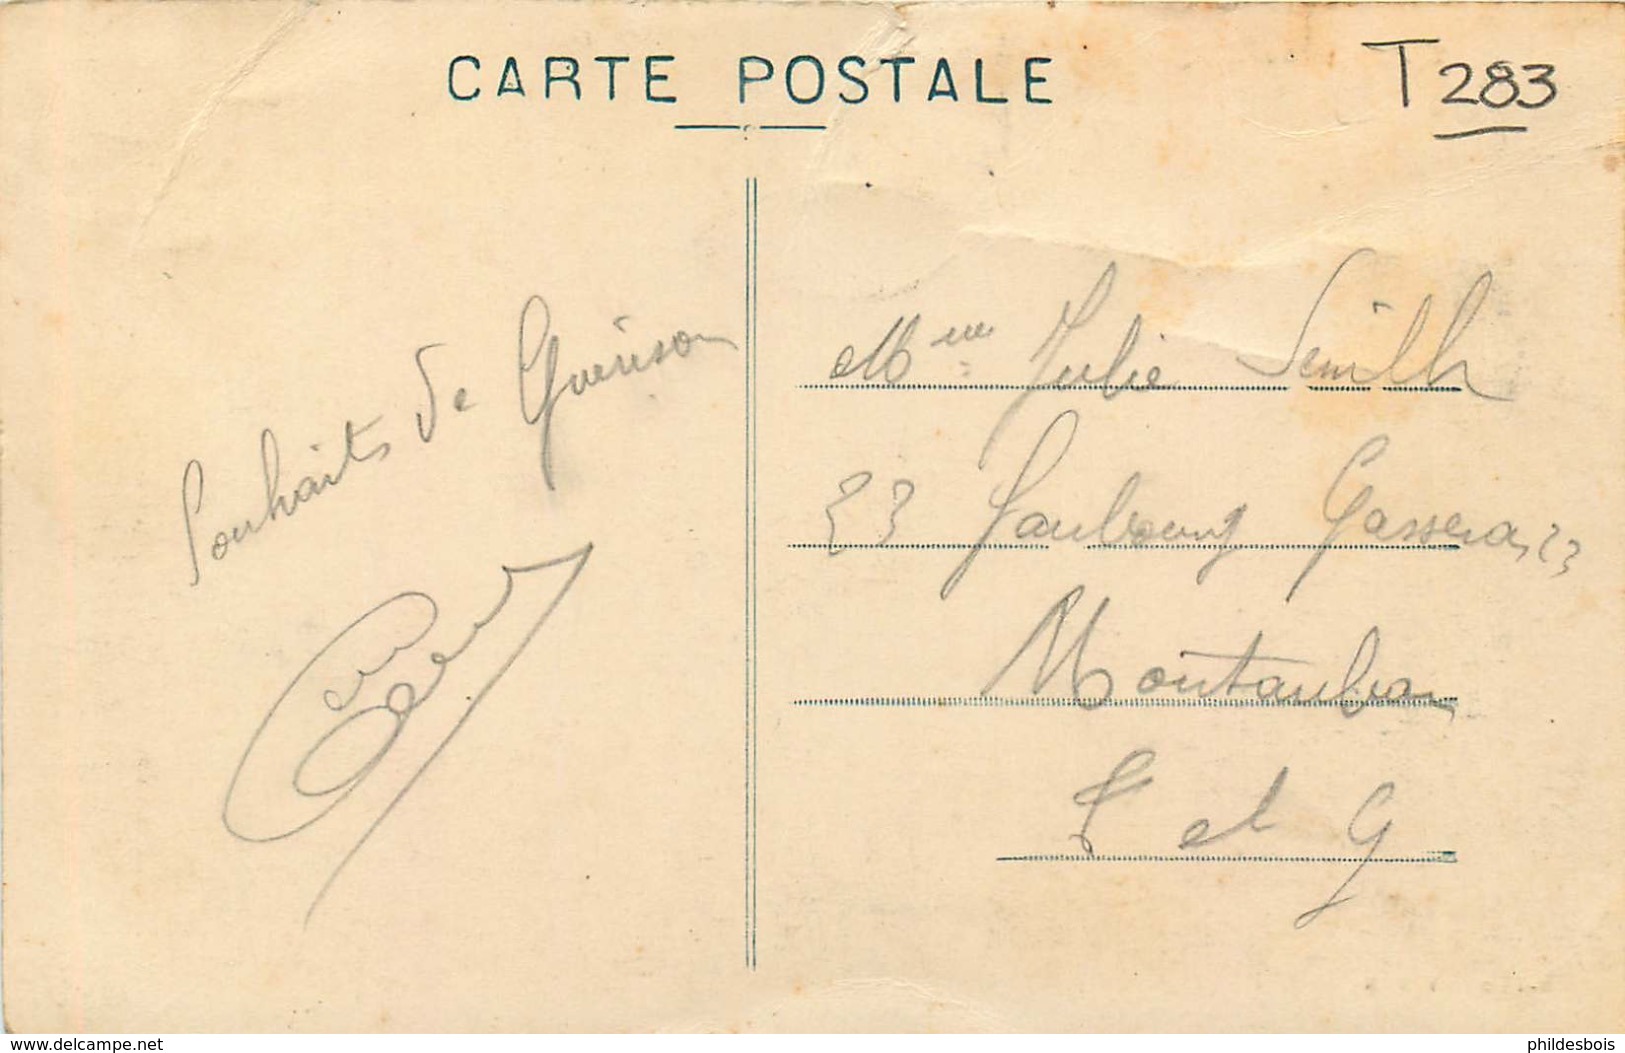 CARTE POSTALE
T 283
Souhaits de Guérison
Mme Julie
23 Faubourg Gasseras 23
Montauban
T et G
www.delcampe.net
phildesbois